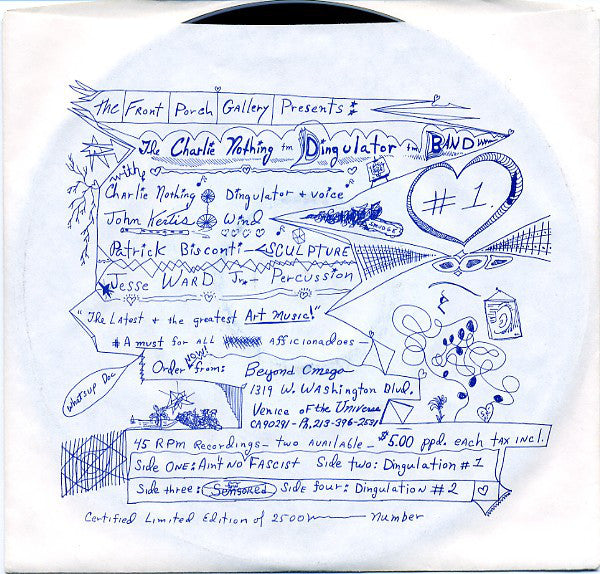 The Front Porch Gallery Presents:
The Charlie Nothing tm Dingulator tm BAND
with
Charlie Nothing Dingulator + voice
# 1.
John Kertis Wind
SMUDGE
Patrick Bisconti - SCULPTURE
Jesse WARD Jr. - Percussion
"The Latest + the greatest Art Music!"
* A must for all afficionadoes
Order NOW! from: Beyond Omega
1319 W. WAshington Blvd.
whatsup Doc
Venice of the Universe
CA 90291 - Ph. 213-396-2531
45 RPM Recordings - two available - $5.00 ppd. each tax incl.
Side One: Aint no Fascist Side two: Dingulation # 1
Side three: Sensored Side four: Dingulation # 2
Certified Limited Edition of 2500 number